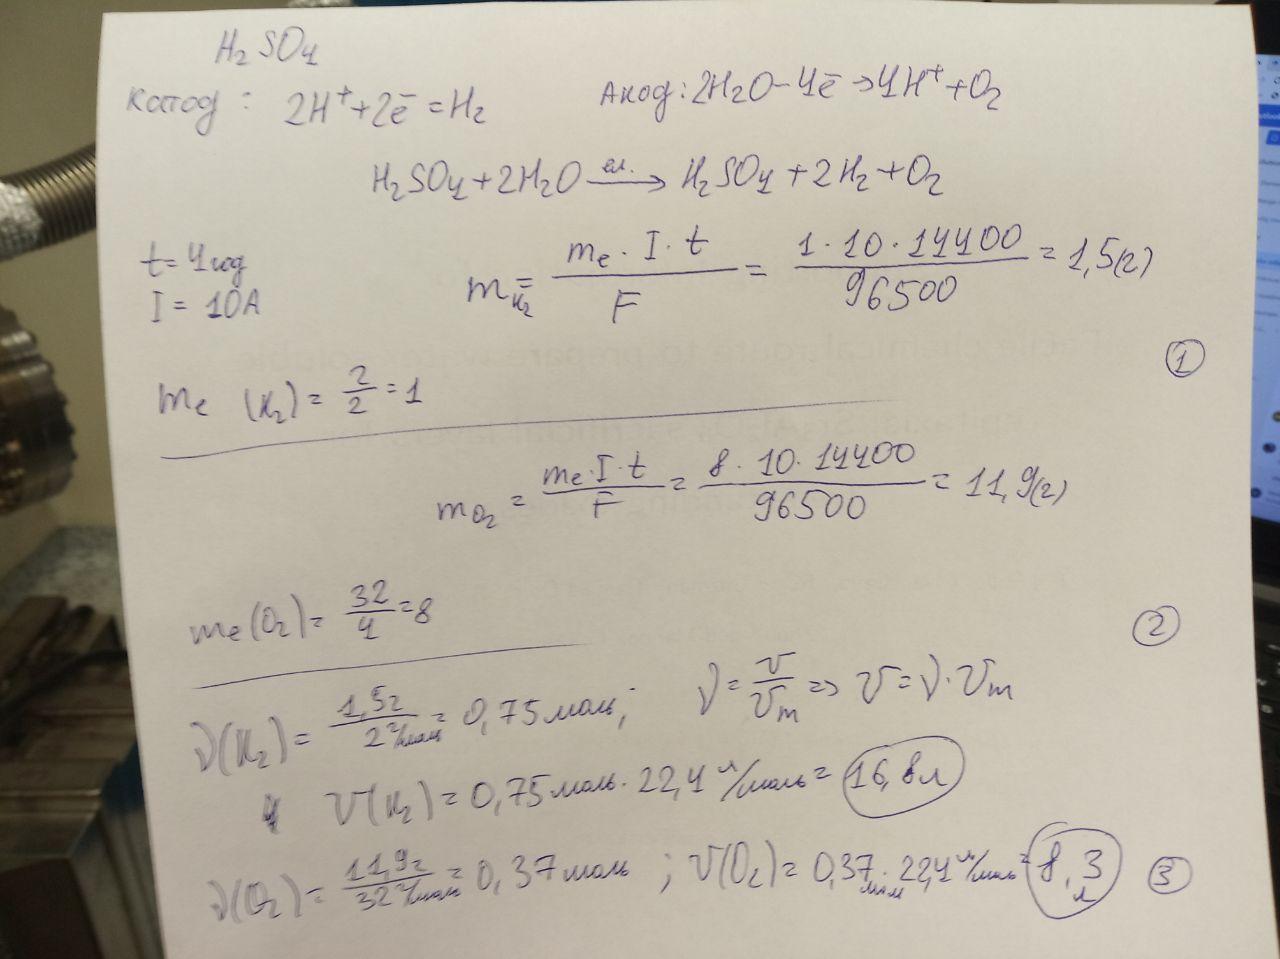 H₂SO₄
Катод: 2H⁺+2ē=H₂ Анод: 2H₂O-4ē→4H⁺+O₂
H₂SO₄+2H₂O —ел.→ H₂SO₄+2H₂+O₂
t=4год
I=10A
m H₂ = mₑ·I·t / F = 1·10·14400 / 96500 = 1,5(г)
①
mₑ (H₂)= 2/2 =1
m O₂ = mₑ·I·t / F = 8·10·14400 / 96500 = 11,9(г)
mₑ(O₂)= 32/4 =8
②
ν(H₂)= 1,5г / 2г/моль = 0,75моль; ν= V/Vₘ => V=ν·Vₘ
V(H₂)=0,75моль·22,4л/моль=16,8л
ν(O₂)= 11,9г / 32г/моль =0,37моль; V(O₂)=0,37моль·22,4л/моль=8,3л ③